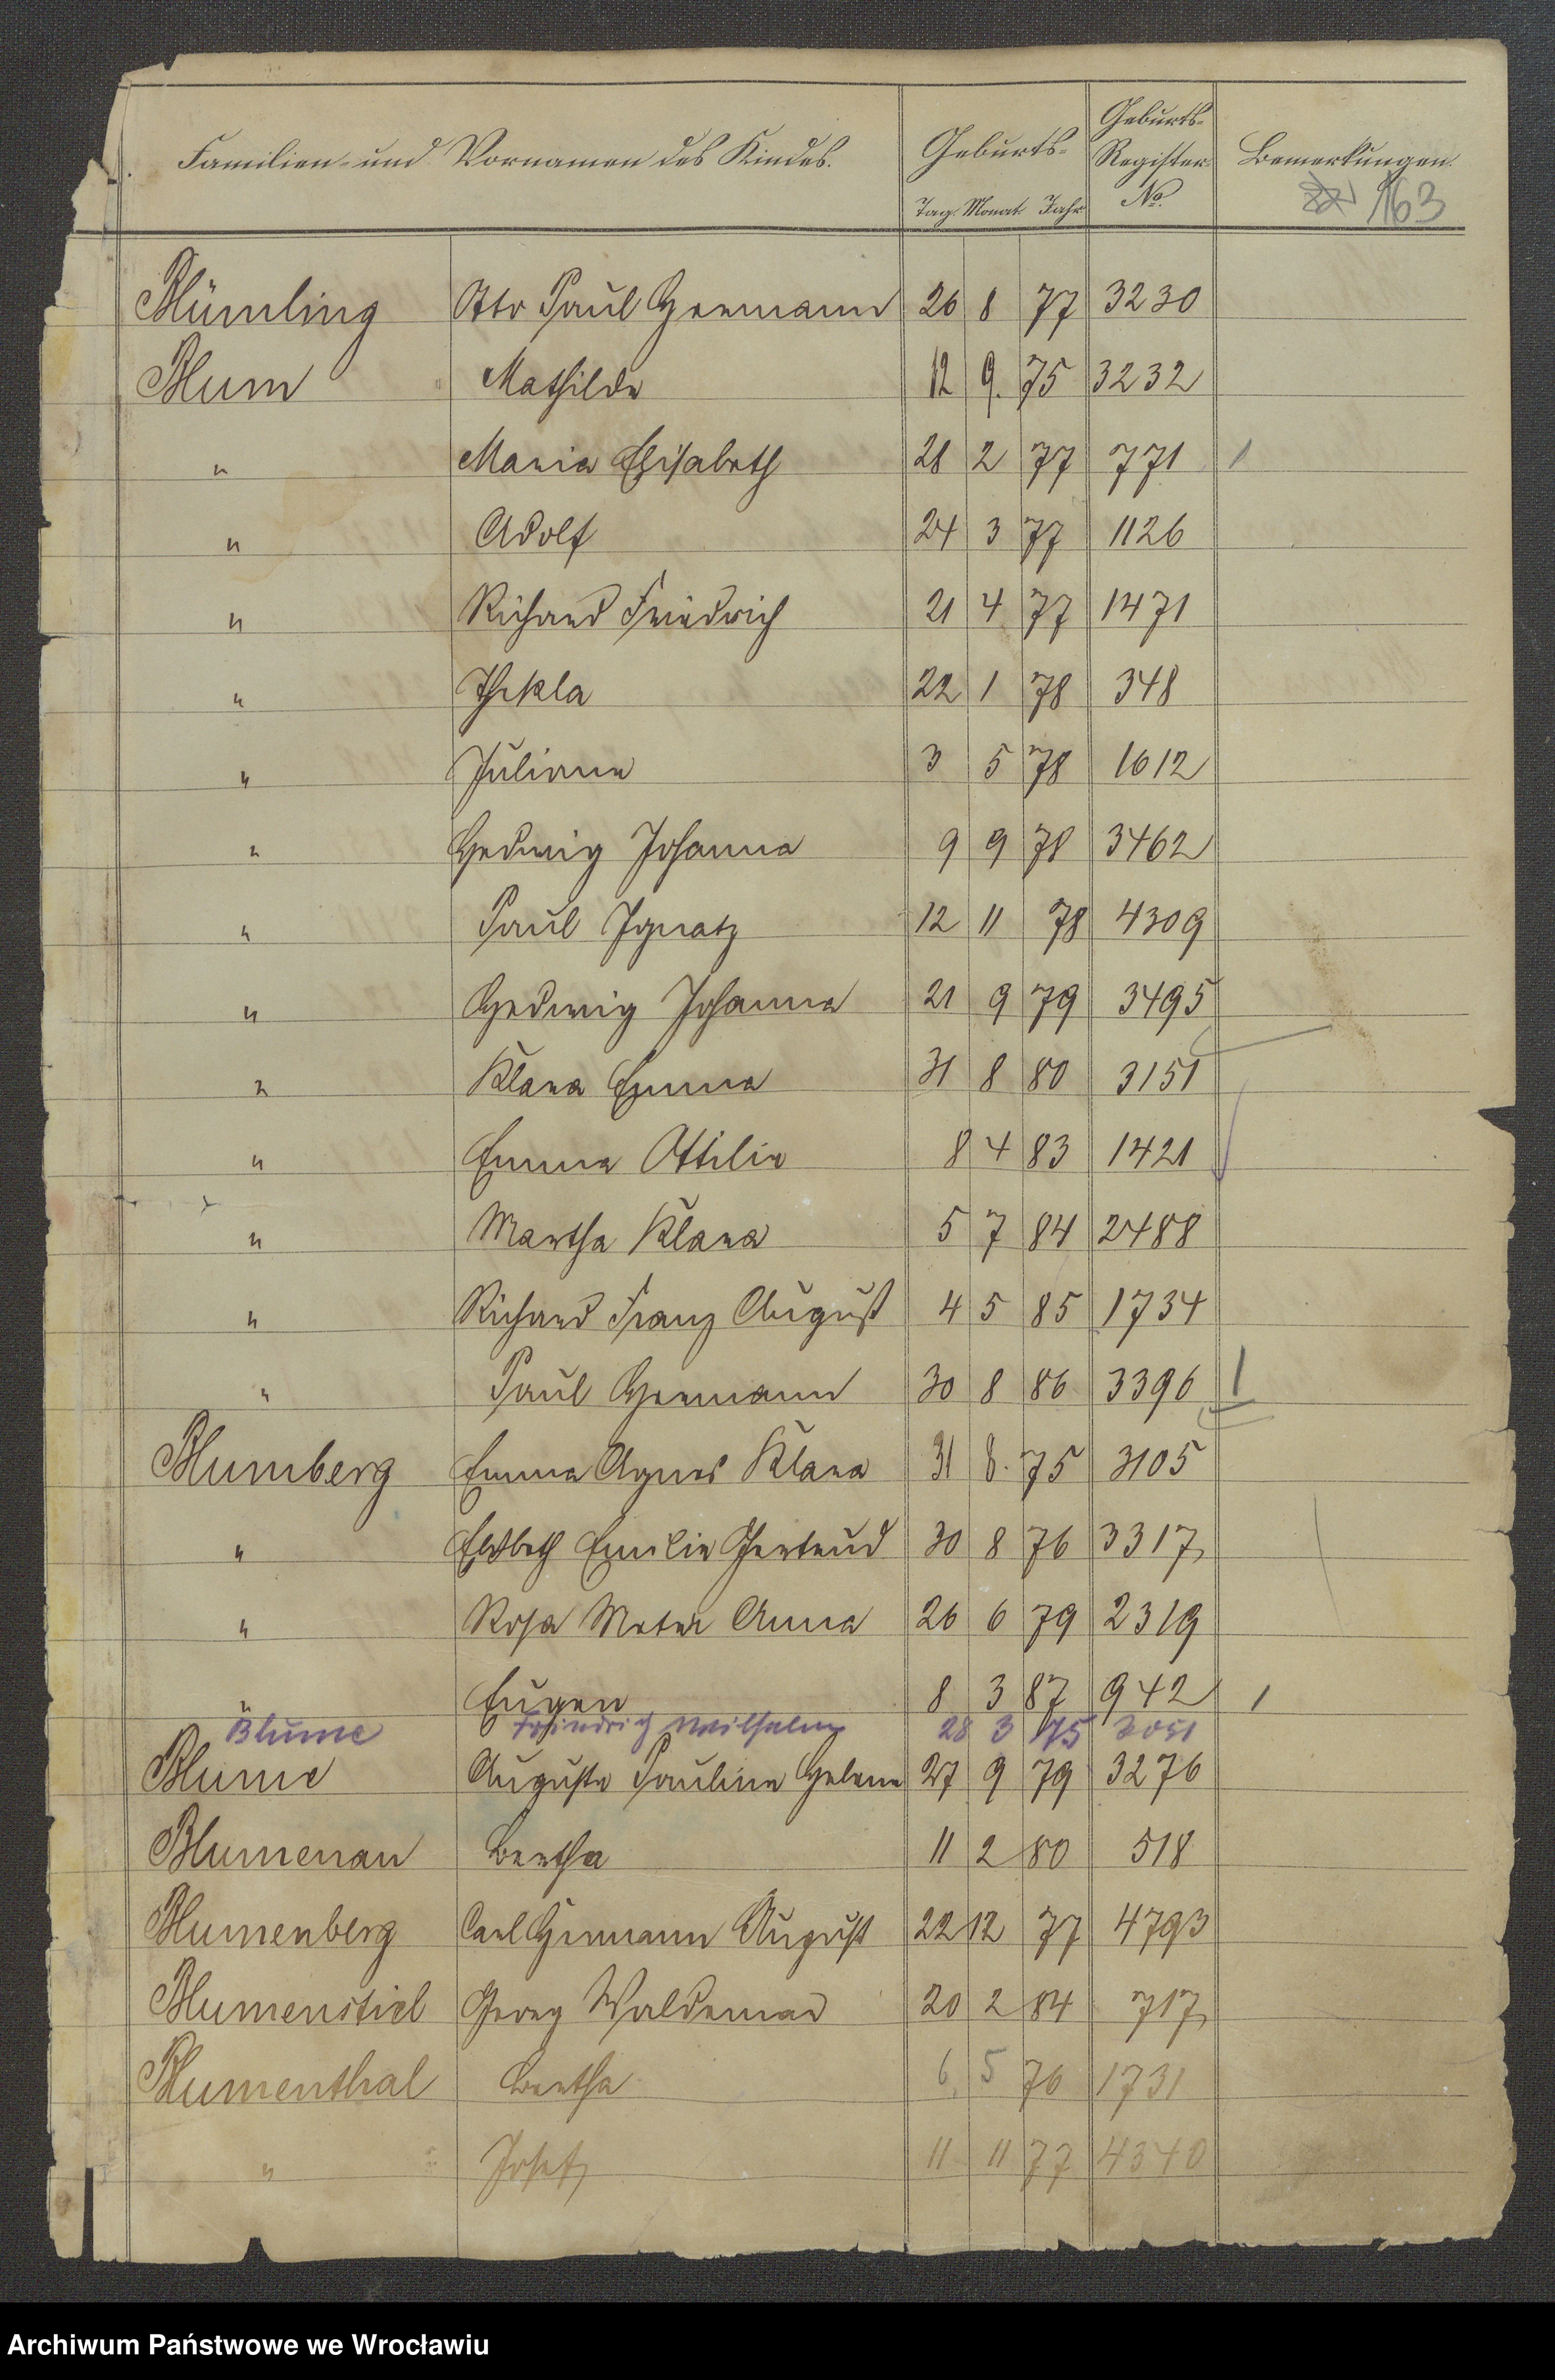 Familien- und Vornamen des Kindes. Geburts- Geburts-Register No. Bemerkungen.
Tag. Monat Jahr
163
Blümling Otto Paul Hermann 26 8 77 3230
Blum Mathilde 12 9. 75 3232
" Maria Elisabeth 28 2 77 771 1
" Adolf 24 3 77 1126
" Richard Friedrich 21 4 77 1471
" Thekla 22 1 78 348
" Juliane 3 5 78 1612
" Hedwig Johanna 9 9 78 3462
" Paul Ignatz 12 11 78 4309
" Hedwig Johanna 21 9 79 3495
" Klara Emma 31 8 80 3151
" Emma Ottilie 8 4 83 1421
" Martha Klara 5 7 84 2488
" Richard Franz August 4 5 85 1734
" Paul Hermann 30 8 86 3396 1
Blumberg Emma Agnes Klara 31 8. 75 3105
" Elsbeth Emilie Gertrud 30 8 76 3317
" Rosa Anna 26 6 79 2319
" Eugen 8 3 87 942 1
Blume Friedrich Wilhelm 28 3 75
Blume Auguste Pauline Helene 27 9 79 3276
Blumenau Bertha 11 2 80 518
Blumenberg Carl Hermann August 22 12 77 4793
Blumenstiel Georg Waldemar 20 2 84 717
Blumenthal Bertha 6 5 76 1731
" Josef 11 11 77 4340
Archiwum Państwowe we Wrocławiu